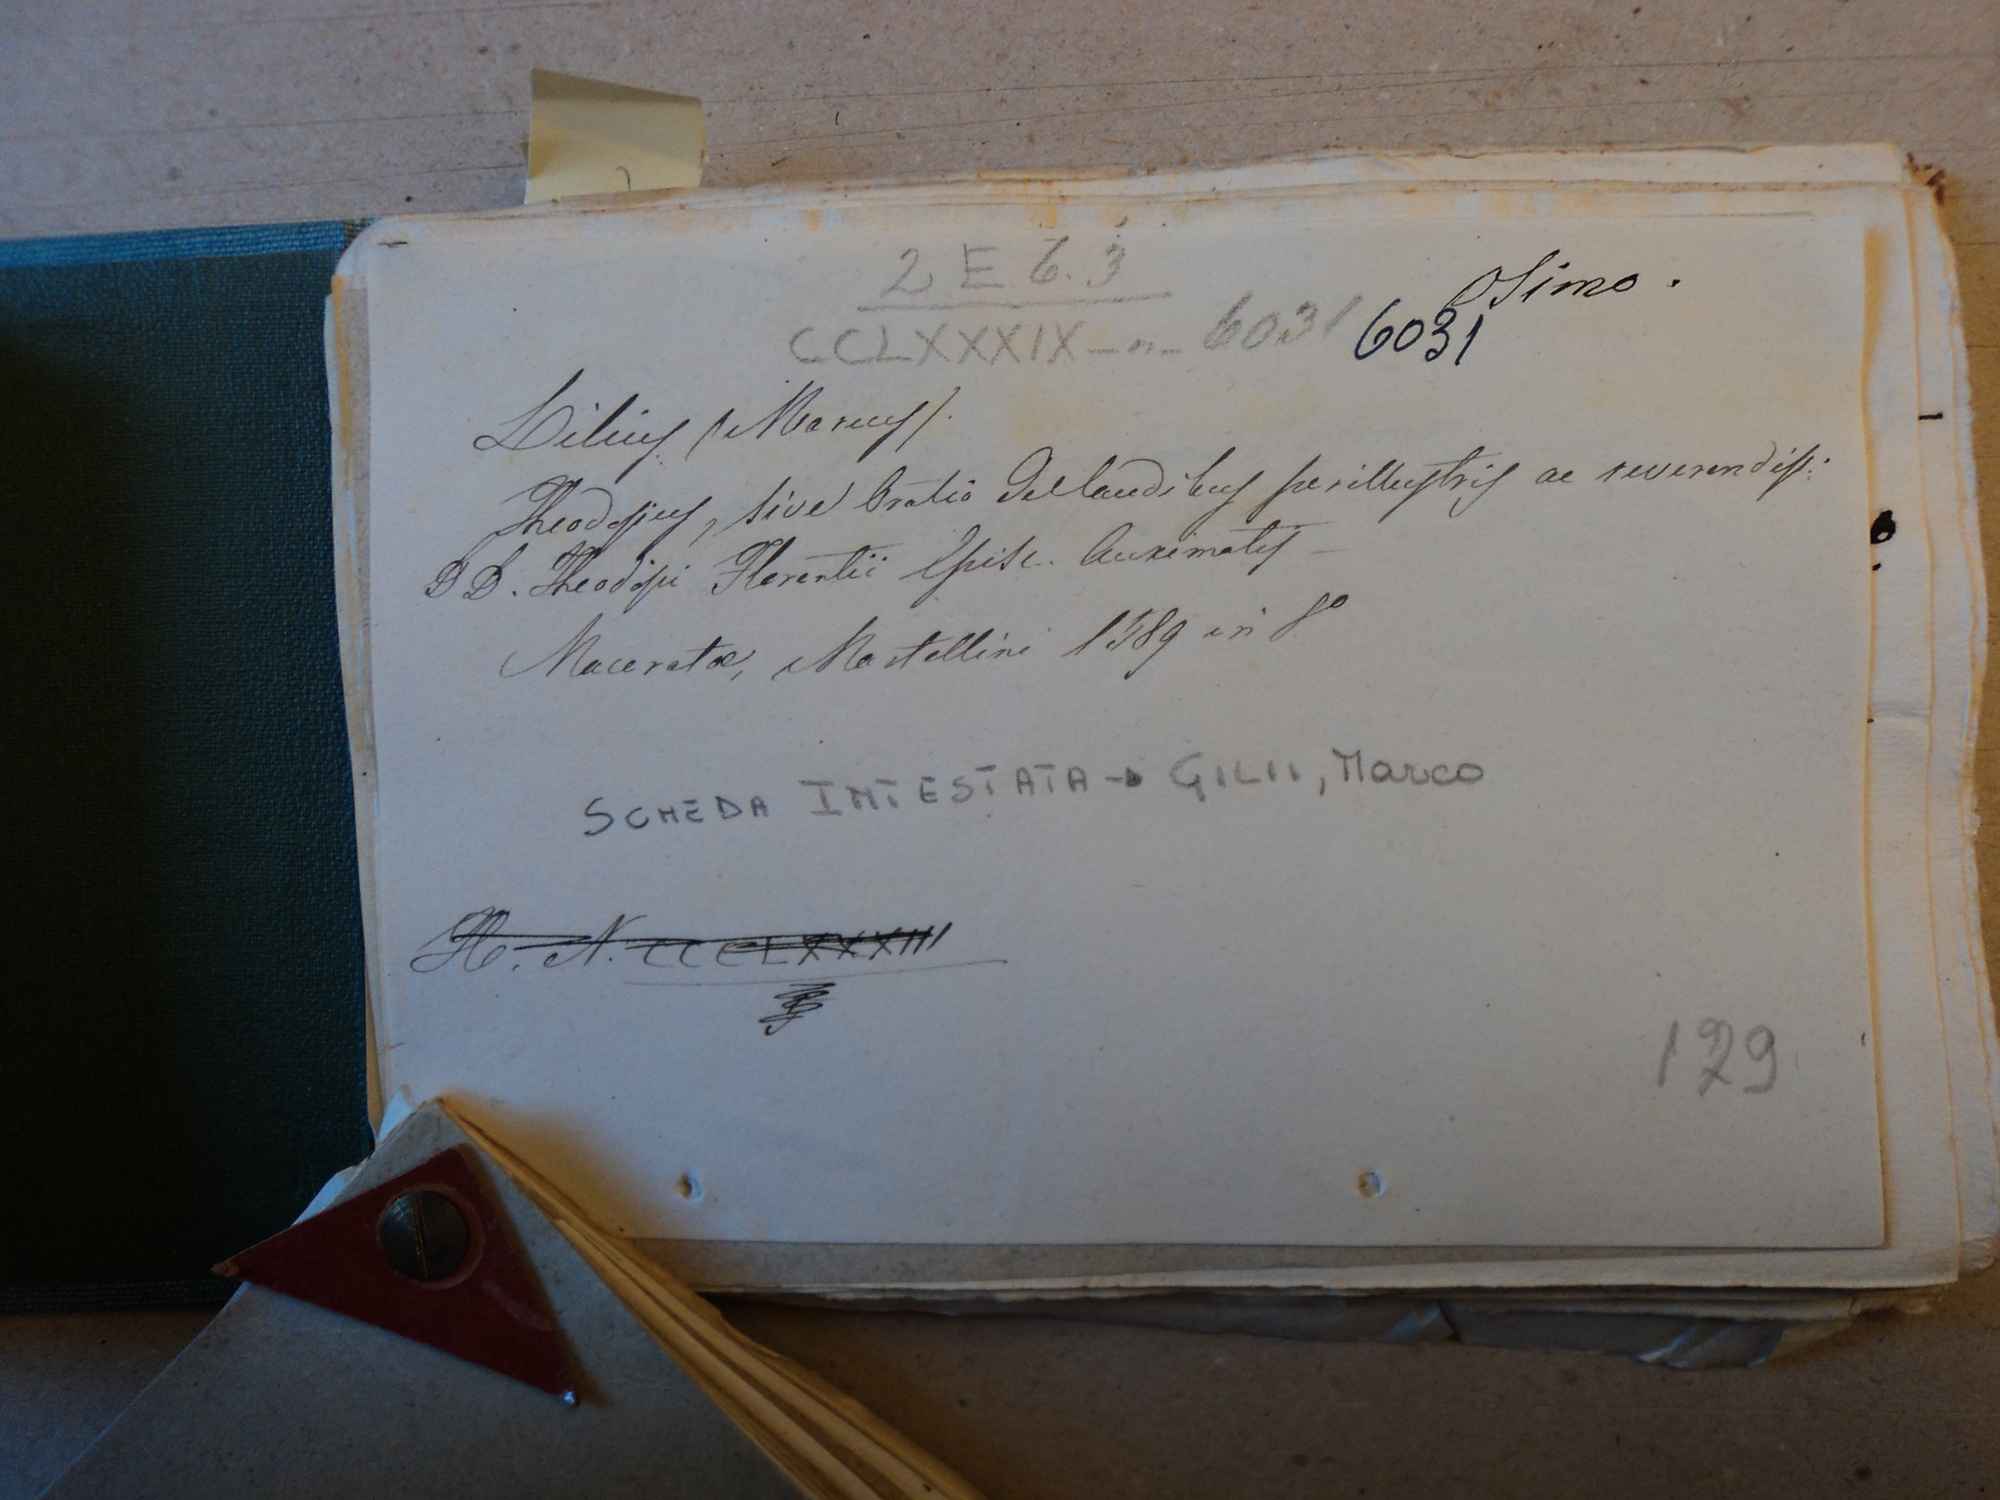 2 E 6. 3
Osimo.
CCLXXXIX - n - 6031 6031
Lilius (Marcus).
Theodosius, sive Oratio de laudibus perillustris ac reverendiss:
D D. Theodosi Florentii Episc. Auximatis –
Maceratæ, Martellini 1589 in 8°
SCHEDA INTESTATA → GILII, Marco
H. N. CCCLXXXIII
129